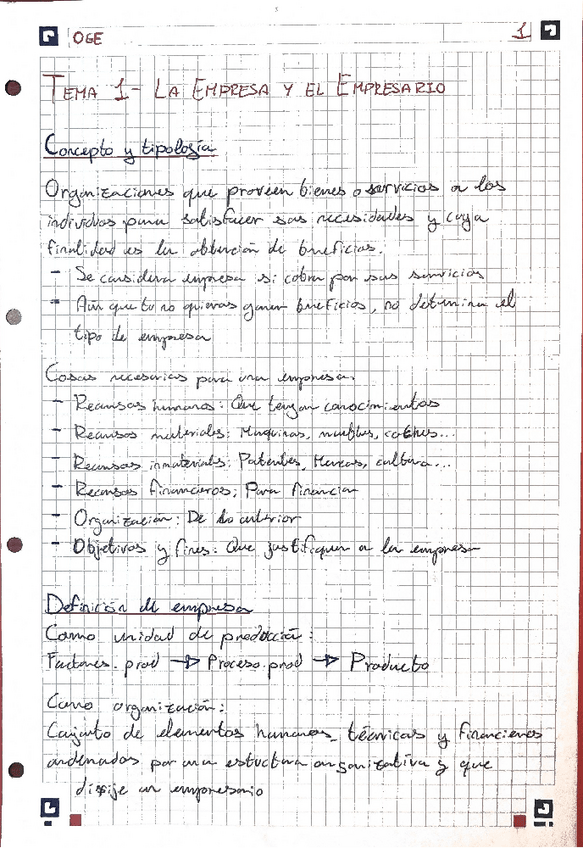 OGE
1
TEMA 1- LA EMPRESA Y EL EMPRESARIO
Concepto y tipología
Organizaciones que proveen bienes o servicios a los
individuos para satisfacer sus necesidades y cuya
finalidad es la obtención de beneficios.
- Se considera empresa si cobra por sus servicios
- Aunque tu no quieras ganar beneficios, no determina el
tipo de empresa
Cosas necesarias para una empresa:
- Recursos humanos: Que tengan conocimientos
- Recursos materiales: Maquinas, muebles, coches...
- Recursos inmateriales: Patentes, Marcas, cultura...
- Recursos financieros; Para financiar
- Organización: De lo anterior
- Objetivos y fines: Que justifiquen a la empresa
Definición de empresa
Como unidad de producción:
Factores.prod → Proceso.prod → Producto
Como organización:
Conjunto de elementos humanos, técnicas y financieros
ordenados por una estructura organizativa y que
dirije un empresario